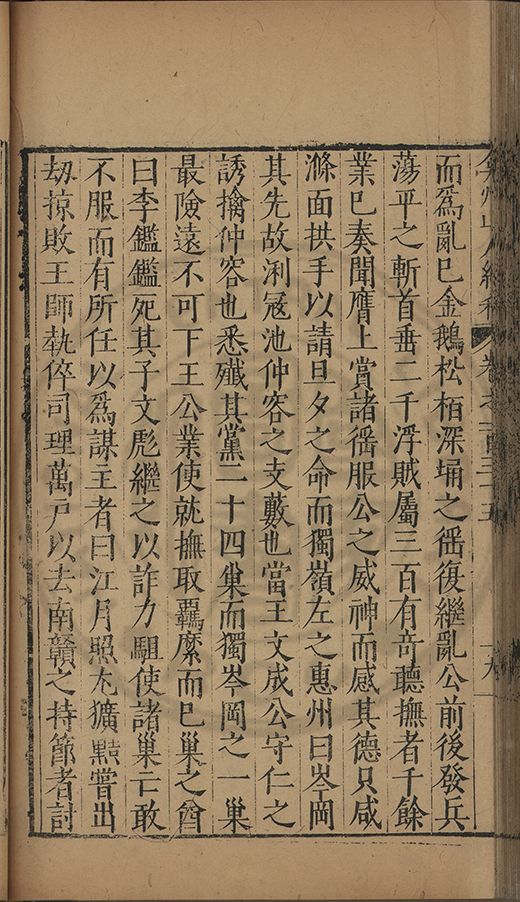 弇州山人續稿 卷之一百三十五 十九
而爲亂巳金鵝松栢深埇之徭復繼亂公前後發兵
蕩平之斬首垂二千浮賊屬三百有奇聽撫者千餘
業巳奏聞膺上賞諸徭服公之威神而感其德只咸
滌面拱手以請旦夕之命而獨嶺左之惠州曰岑岡
其先故浰冦池仲容之支藪也當王文成公守仁之
誘擒仲容也悉殱其黨二十四巢而獨岑岡之一巢
最險遠不可下王公業使就撫取羈縻而巳巢之酋
曰李鑑鑑死其子文彪繼之以詐力駔使諸巢亡敢
不服而有所任以爲謀主者曰江月照尢獷黠嘗出
刼掠敗王師執倅司理萬戸以去南贛之持節者討